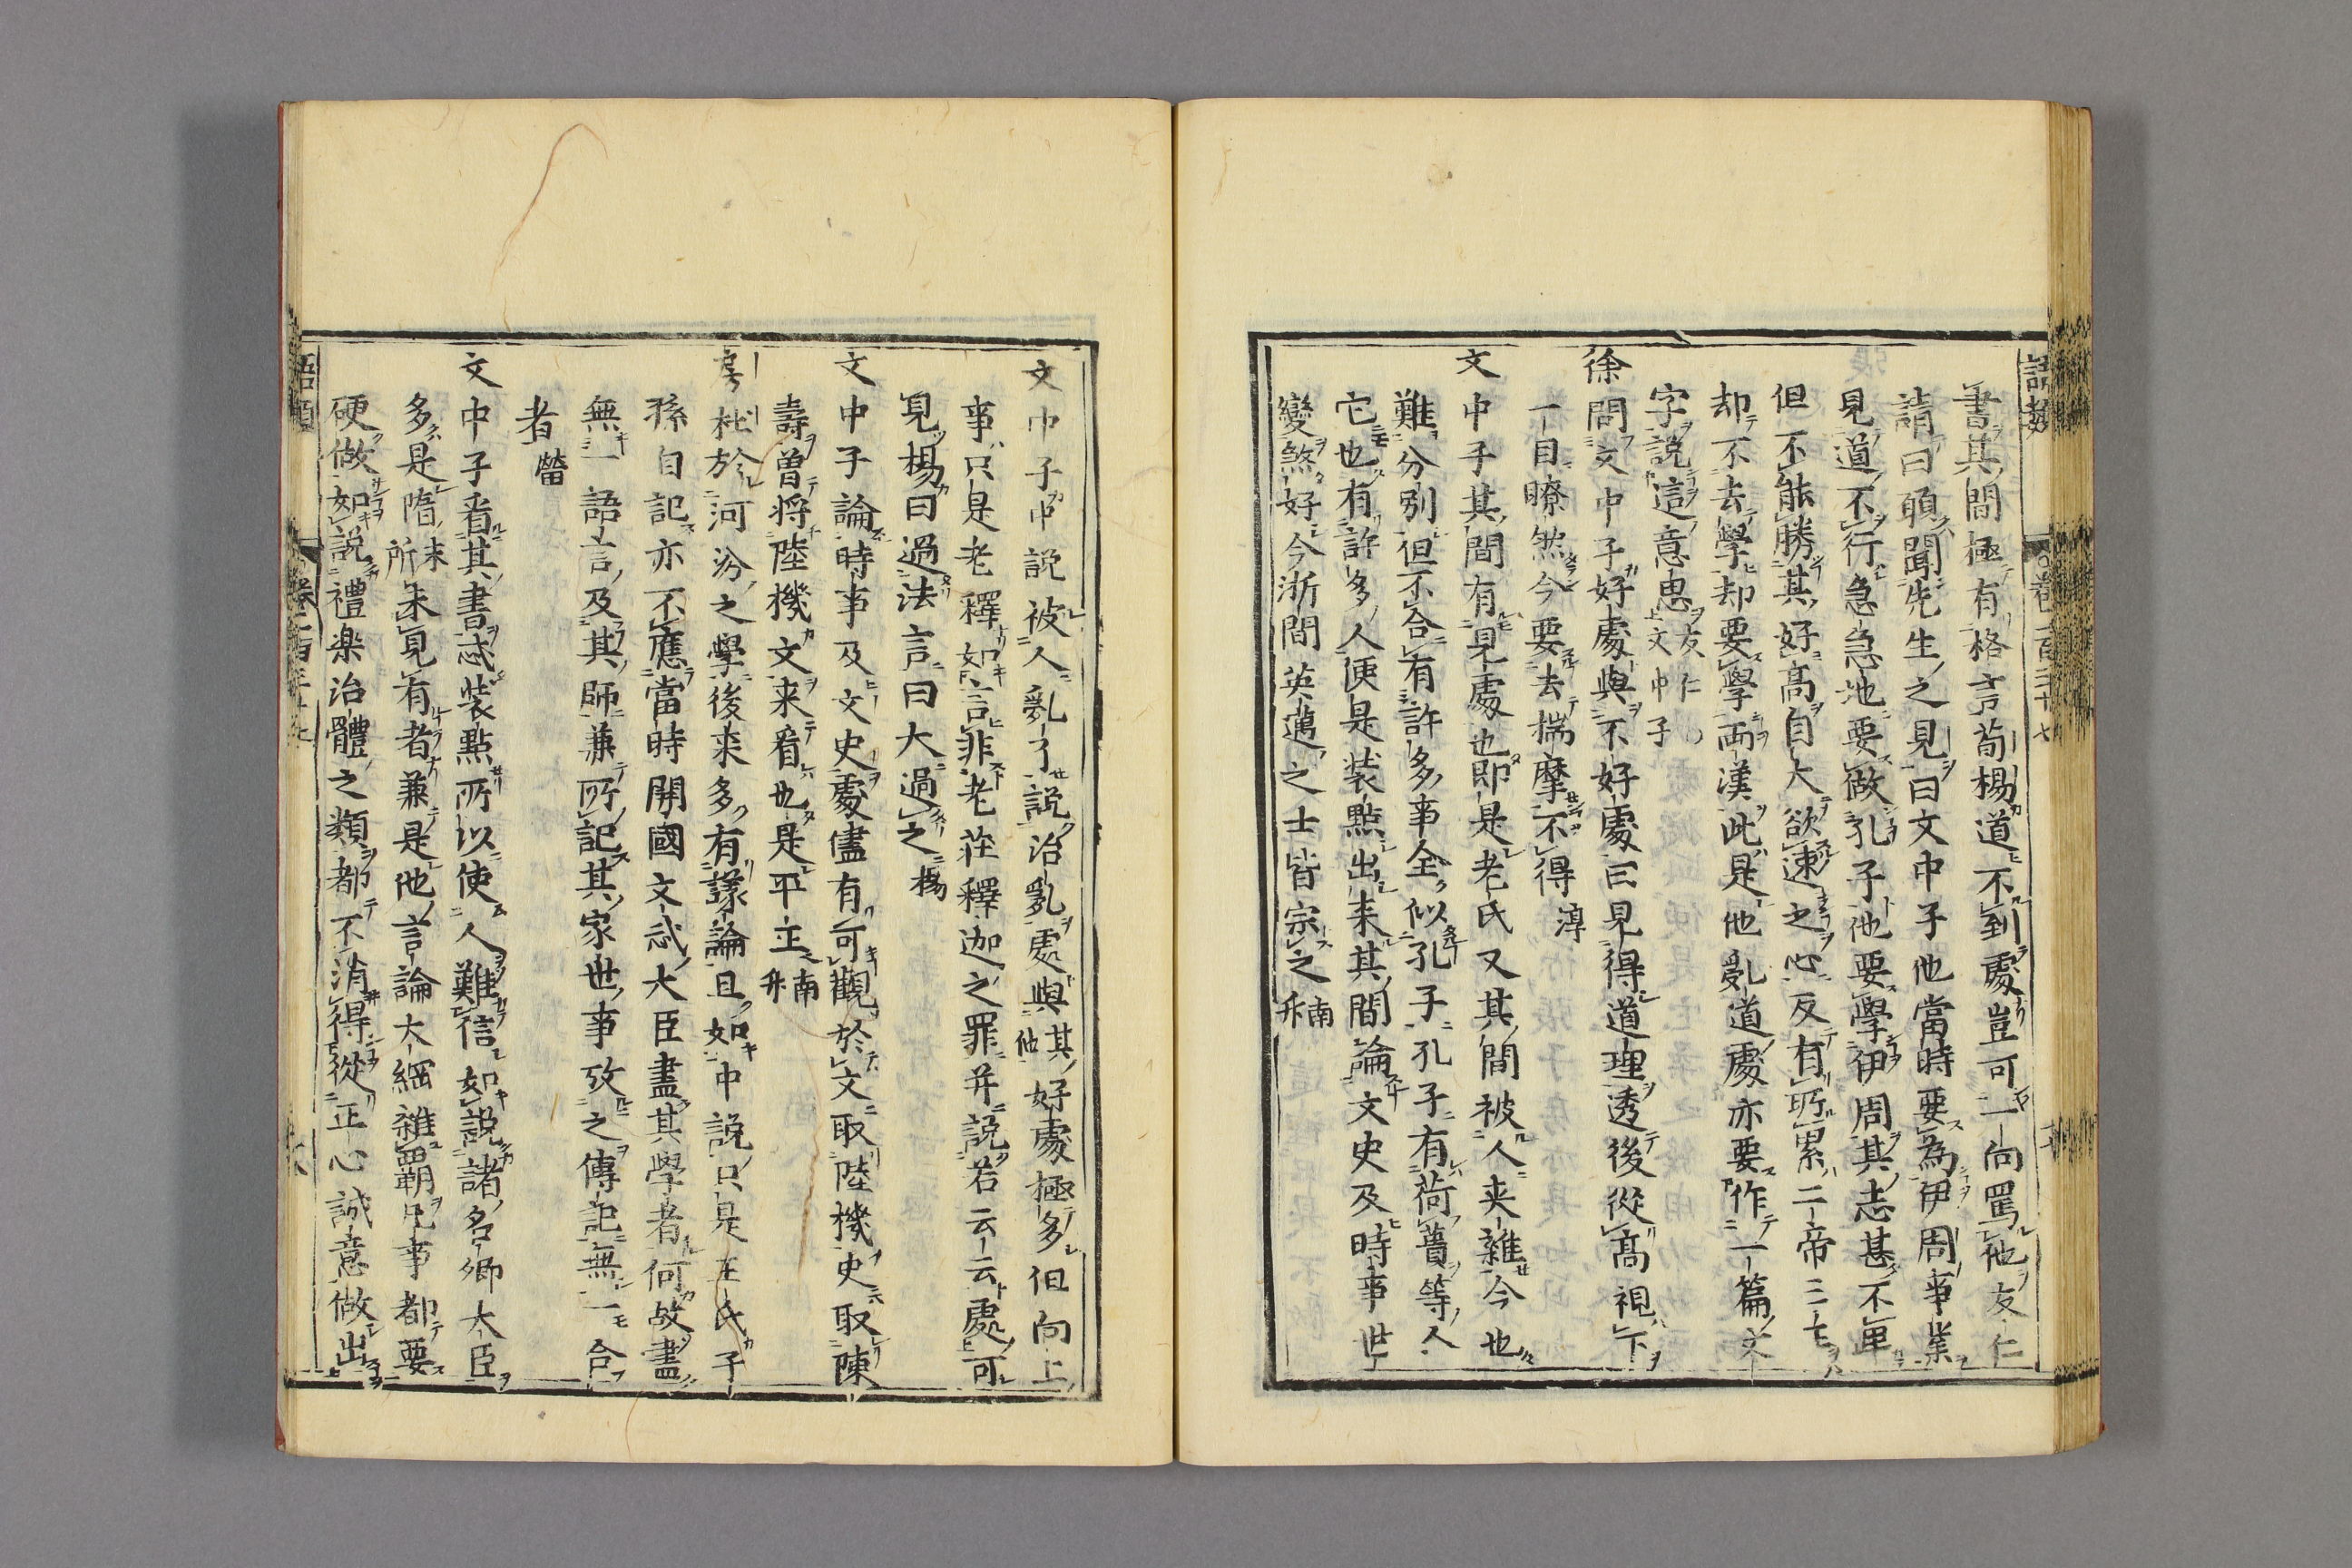 語類
卷一百三十七
書其間極有格言荀楊道不到處豈可一向罵他友仁
請曰願聞先生之見曰文中子他當時要為伊周事業
見道不行急急地要做孔子他要學伊周其志甚不卑
但不能勝其好高自大欲速之心反有所累二帝三七
却不去學却要學兩漢此是他亂道處亦要作一篇文
字說這意思友仁上文中子
徐問文中子好處與不好處曰見得道理透後從高視下
一目瞭然今要去揣摩不得淳
文中子其間有見處也即是老氏又其間被人夾雜今也
難分別但不合有許多事全似孔子孔子有荷蕢等人
它也有許多人便是裝點出來其間論文史及時事世
變煞好今浙間英邁之士皆宗之南升
文中子中說被人亂了說治亂處與其他好處極多但向上
事只是老釋如言非老莊釋迦之罪并說若云云處可
見楊曰過法言曰大過之楊
文中子論時事及文史處儘有可觀於文取陸機史取陳
壽曽将陸機文来看也是平正南升
房杜於河汾之學後来多有議論且如中說只是王氏子
孫自記亦不應當時開國文武大臣盡其學者何故盡
無一語言及其師兼所記其家世事攷之傳記無一合
者㽦
文中子看其書忒裝點所以使人難信如說諸名卿大臣
多是隋末所未見有者兼是他言論大綱雜霸凡事都要
硬做如說禮樂治體之類都不消得從正心誠意做出
語類
卷一百三十七